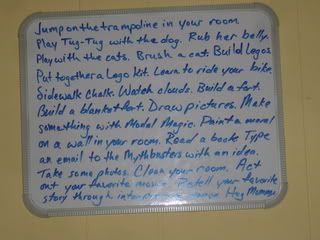 Jump on the trampoline in your room.
Play Tug-Tug with the dog. Rub her belly.
Play with the cats. Brush a cat. Build Legos.
Put together a Lego Kit. Learn to ride your bike.
Sidewalk Chalk. Watch clouds. Build a fort.
Build a blanket fort. Draw pictures. Make
something with Model Magic. Paint a mural
on a wall in your room. Read a book. Type
an email to the Mythbusters with an idea.
Take some photos. Clean your room. Act
out your favorite movie. Retell your favorite
story through dance. Hug Mommy.